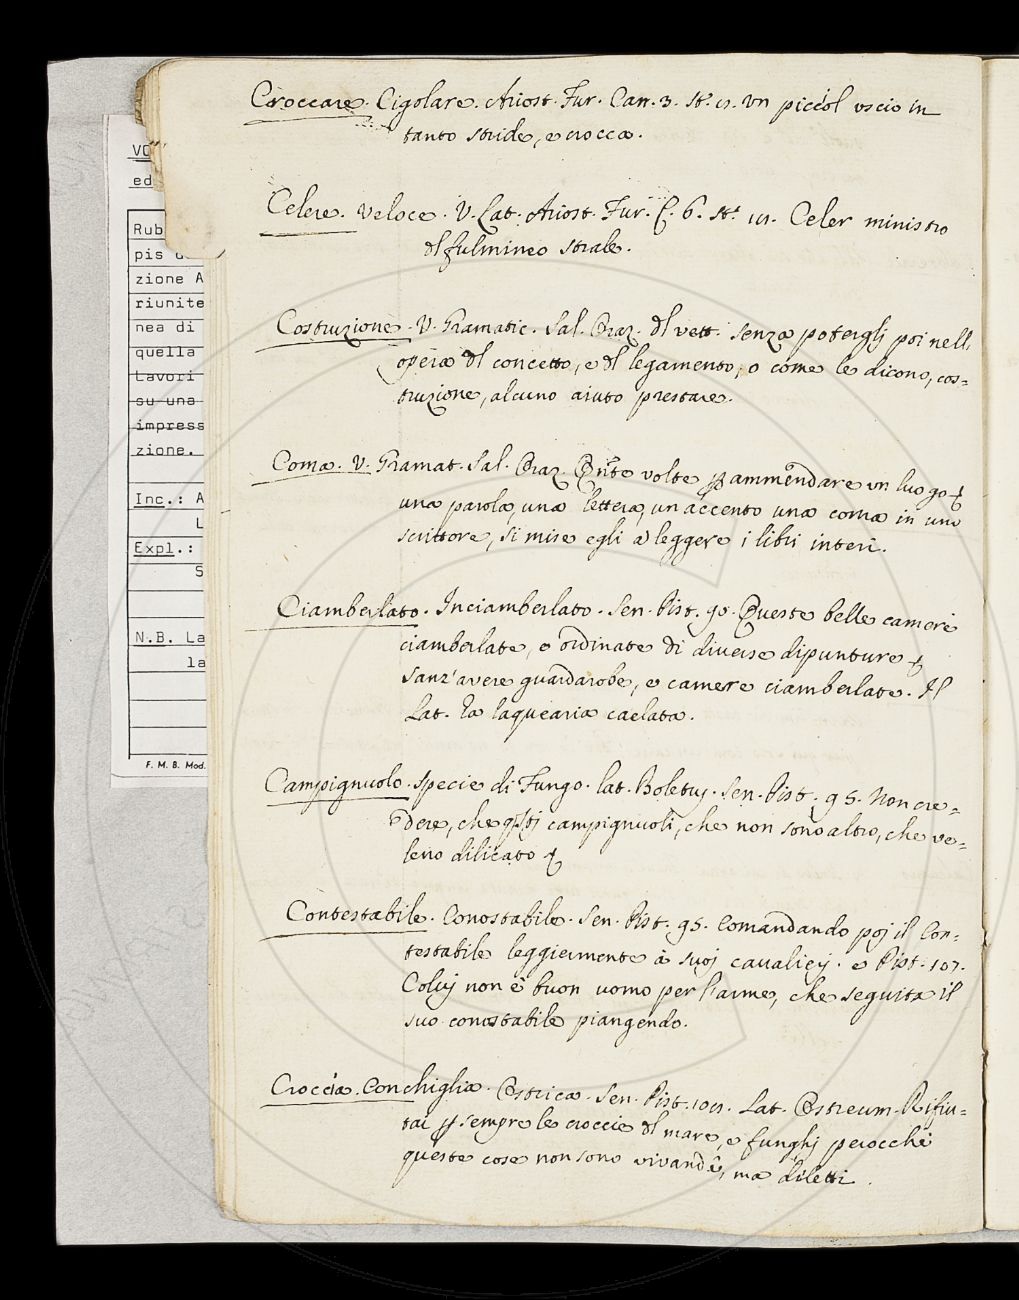 Croccare. Cigolare. Ariost. Fur. Can. 3. st.ª un piccol uscio in
tanto stride, e crocca.
Celere. Veloce. V. Lat. Ariost. Fur. C. 6. st.ª Celer ministro
dl fulmineo strale.
Costruzione. V. Gramatic. Sal. Oraz. dl vett. senza potergli poi nell
opera dl concetto, e dl legamento, o come le dicono, cos=
truzione, alcuno aiuto prestare.
Coma. V. Gramat. Sal. Oraz. volte ammendare un luogo
una parola, una lettera, un accento una coma in uno
scrittore, si mise egli a leggere i libri interi.
Ciamberlato. Inciamberlato. Sen. Pist. 90. Queste belle camere
ciamberlate, e ordinate di diverse dipunture
sanz'avere guardarobe, e camere ciamberlate. Il
Lat. ha laquearia caelata.
Campignuolo. specie di Fungo. lat. Boletus. Sen. Pist. 95. Non cre=
dere, che qsti campignuoli, che non sono altro, che ve=
leno dilicato
Contestabile. Conostabile. Sen. Pist. 95. Comandando poj il Con=
testabile leggiermente à suoj caualierj. e Pist. 107.
Coluj non è buon uomo per l'arme, che seguita il
suo conostabile piangendo.
Croccia. Conchiglia. Ostrica. Sen. Pist. Lat. Ostreum. Rifiu=
tai sempre le croccie dl mare, e funghj perocchè
queste cose non sono vivande, ma diletti.
VO
ed
Rub
pis
zione A
riunite
nea di
quella
Lavori
su una
impress
zione.
Inc.: A
L
Expl.:
S
N.B. La
la
F. M. B. Mod.